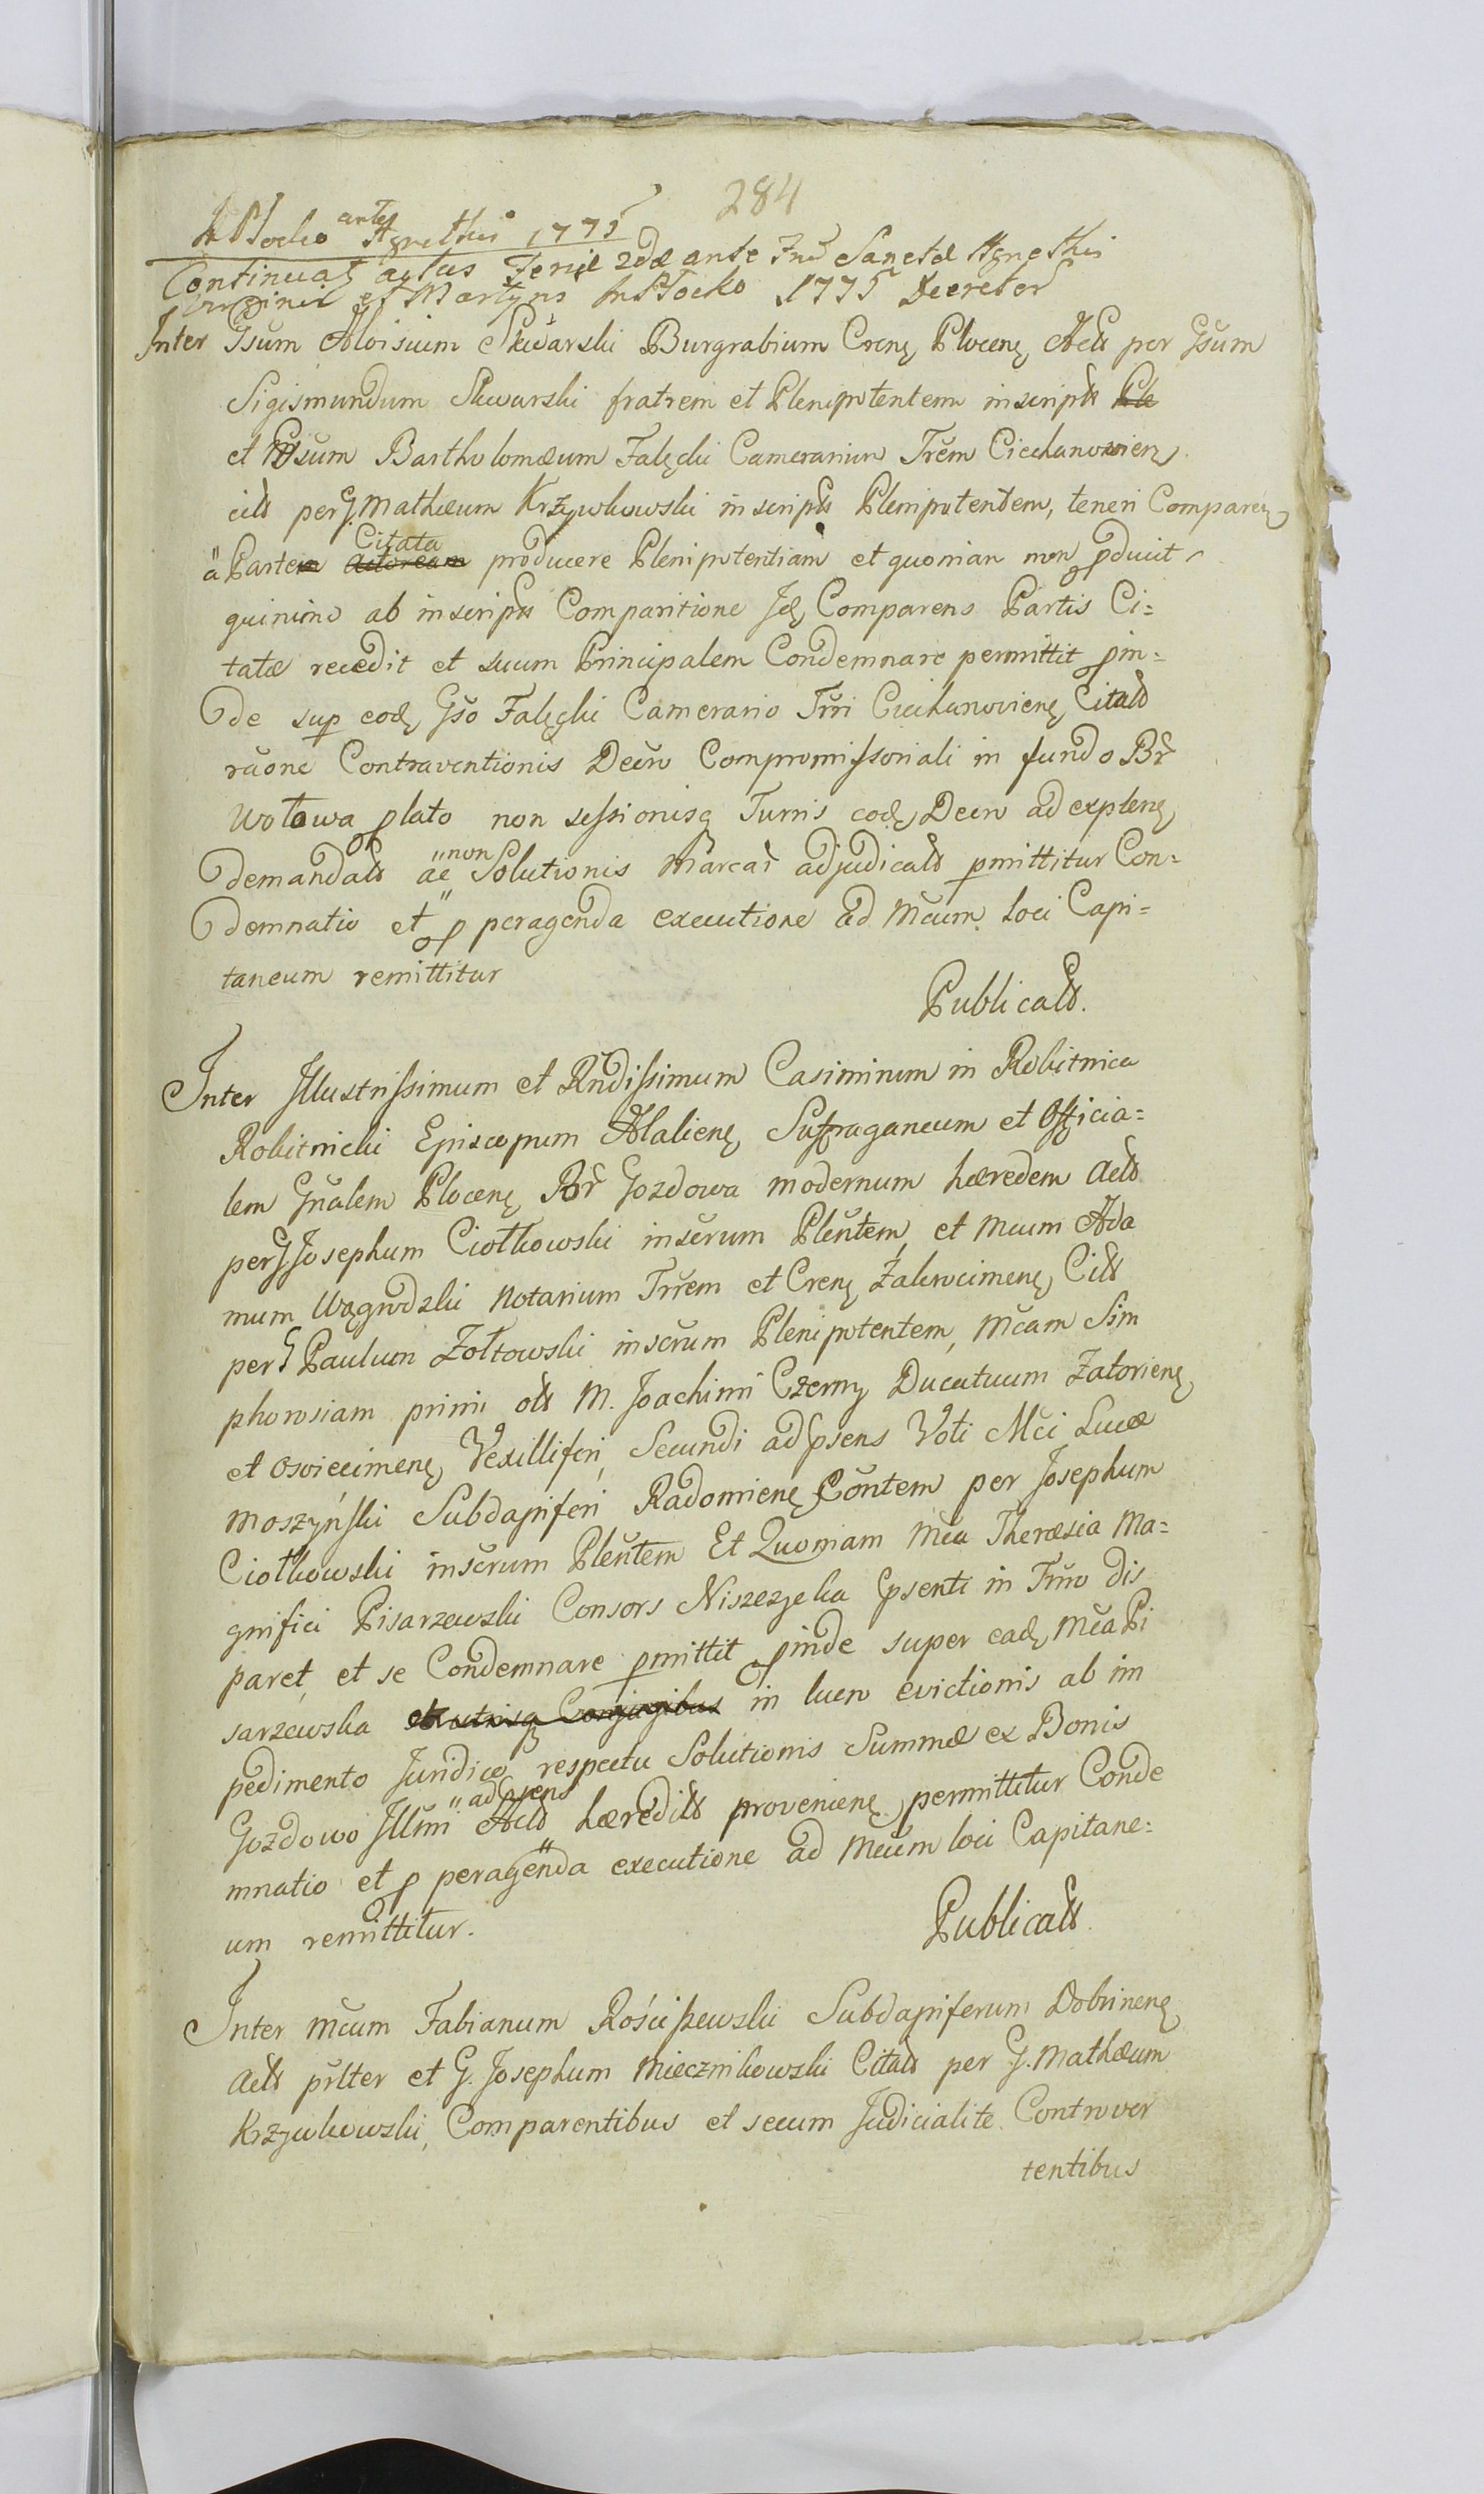 284
In Płocko ante Agnethis 1775
Continuaõ actus Feriæ 2dæ ante Fm̃ Sanctæ Agnethis
Virginis et Martyris in Płocko 1775 Decretor
Inter Gsum Aloisium Skwarski Burgrabium Crenę Plocenę Actt per Gsum
Sigismundum Skwarski fratrem et Plenipotentem inscript Ple
et Gsum Bartholomæum Falęcki Camerarium Trẽm Ciechanovienę
citt per G. Mathæum Krzywkowski inscript Plenipotentem, teneri Comparenę
ä Partem Actoream Citata producere Plenipotentiam et quoniam non pduxit
quinimo ab inscript Comparitione Id Comparens Partis Ci=
tatæ recedit et suum Principalem Condemnare permittit pin=
de sup eod Gso Falęcki Camerario Trři Ciechanovienę Citatt
raõne Contraventionis Decro Compromissoriali in fundo Bř
Wotowa plato non sessionisq Turris eod Decro ad explenę
demandatt äc non Solutionis Marcar adjudicatt pmittitur Con=
demnatio et p peragenda executione ad Mcum loci Capi=
taneum remittitur
Publicatt.
Inter Illustrissimum et Rñdissimum Casimirum in Rokitnica
Rokitnicki Episcopum Alalienę Suffraganeum et Officia=
lem Gñalem Plocenę Bř Gozdowa modernum hæredem actt
per G Josephum Ciołkowski inscrum Pleñtem, et Mcum Ada
mum Wągrodzki Notarium Trřem et Crenę Zakrocimenę Citt
per G Paulum Zołtowski inscrum Plenipotentem, Mcam Sim
phorosiam primi ott M. Joachimi Czerny Ducatuum Zatorienę
et Osviecimenę Vexilliferi, Secundi ad psens Voti Mci Lucæ
Moszyński Subdapiferi Radomienę Coñtem per Josephum
Ciołkowski inscrum Pleñtem Et Quoniam Mca Theræsia Ma=
gnifici Pisarzewski Consors Niszczycka psenti in Trmo dis
paret, et se Condemnare pmittit pinde super ead Mca Pi
sarzewska et utrisq Conjugibus in lucro evictionis ab im
pedimento Juridico respectu Solutionis Summæ ex Bonis
Gozdowo Illmi ad psens Actt hæreditt provenienę permittitur Conde
mnatio et p peragenda executione ad Mcum loci Capitane=
um remittitur.
Publicatt.
Inter Mcum Fabianum Rościszewski Subdapiferum Dobrinenę
Actt prlter et G. Josephum Miecznikowski Citatt per G. Mathæum
Krzywkowski, Comparentibus et secum Judicialite Controver
tentibus